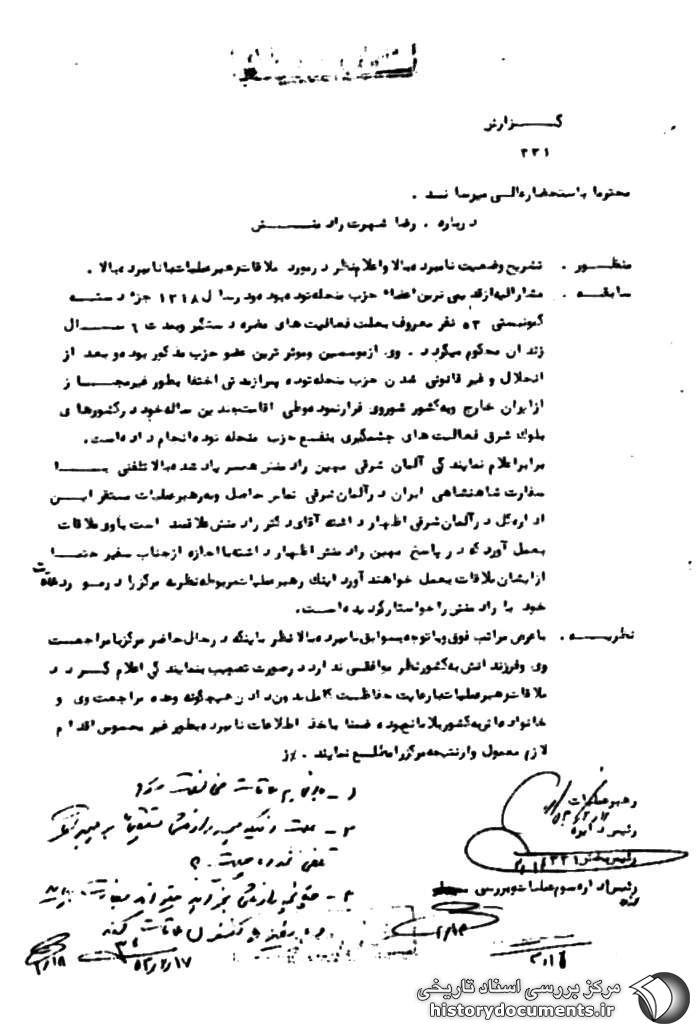 گزارش
۳۳۱
محترما باستحضارعالی میرساند .
درباره . رضا شهرت رادمنش
منظور . تشریح وضعیت نامبرده بالا و اعلام نظر در مورد ملاقات رهبر عملیات با نامبرده بالا .
سابقه . مشارالیه از قدیمی ترین اعضاء حزب منحله توده بوده و در سال ۱۳۱۸ جزء دسته
کمونیستی ۵۳ نفر معروف بعلت فعالیت های مضره دستگیر و بمدت ۶ سال
زندان محکوم میگردد . وی از موسسین و موثرترین عضو حزب مذکور بوده و بعد از
انحلال و غیر قانونی شدن حزب منحله توده پس از مدتی اختفا بطور غیرمجاز
از ایران خارج و به کشور شوروی فرار نموده و طی اقامت چندین ساله خود در کشورهای
بلوک شرق فعالیت های چشمگیری بنفع حزب منحله توده انجام داده است.
برابر اعلام نمایندگی آلمان شرقی مهین رادمنش همسر یاد شده بالا تلفنی با
سفارت شاهنشاهی ایران در آلمان شرقی تماس حاصل و به رهبر عملیات مستقر این
اداره کل در آلمان شرقی اظهار داشته آقای دکتر رادمنش علاقمند است با وی ملاقات
بعمل آورد که در پاسخ مهین رادمنش اظهار داشته با اجازه از جناب سفیر حتما
از ایشان ملاقات بعمل خواهند آورد اینک رهبر عملیات مربوطه نظریه مرکز را در مورد ملاقات
خود با رادمنش را خواستار گردیده است.
نظریه . با عرض مراتب فوق و با توجه بسوابق نامبرده بالا نظر باینکه در حال حاضر مرکز با مراجعت
وی و فرزندانش به کشور نظر موافقی ندارد در صورت تصویب بنمایندگی اعلام گردد
ملاقات رهبر عملیات با رعایت حفاظت کامل بدون دادن هیچگونه وعده مراجعت وی و
خانواده اش به کشور بلامانع بوده ضمنا با اخذ اطلاعات نامبرده بطور غیر محسوس اقدام
لازم معمول و از نتیجه مرکز را مطلع نمایند . ٪ز
رهبر عملیات
رئیس دایره
رئیس بخش ۳۳۱
رئیس اداره سوم عملیات و بررسی
۱ -
۲ - علت اینکه
تلفن نموده چیست . ؟
۳ -
۵۳/۲/۱۷
۲/۱۸
مرکز بررسی اسناد تاریخی
historydocuments.ir